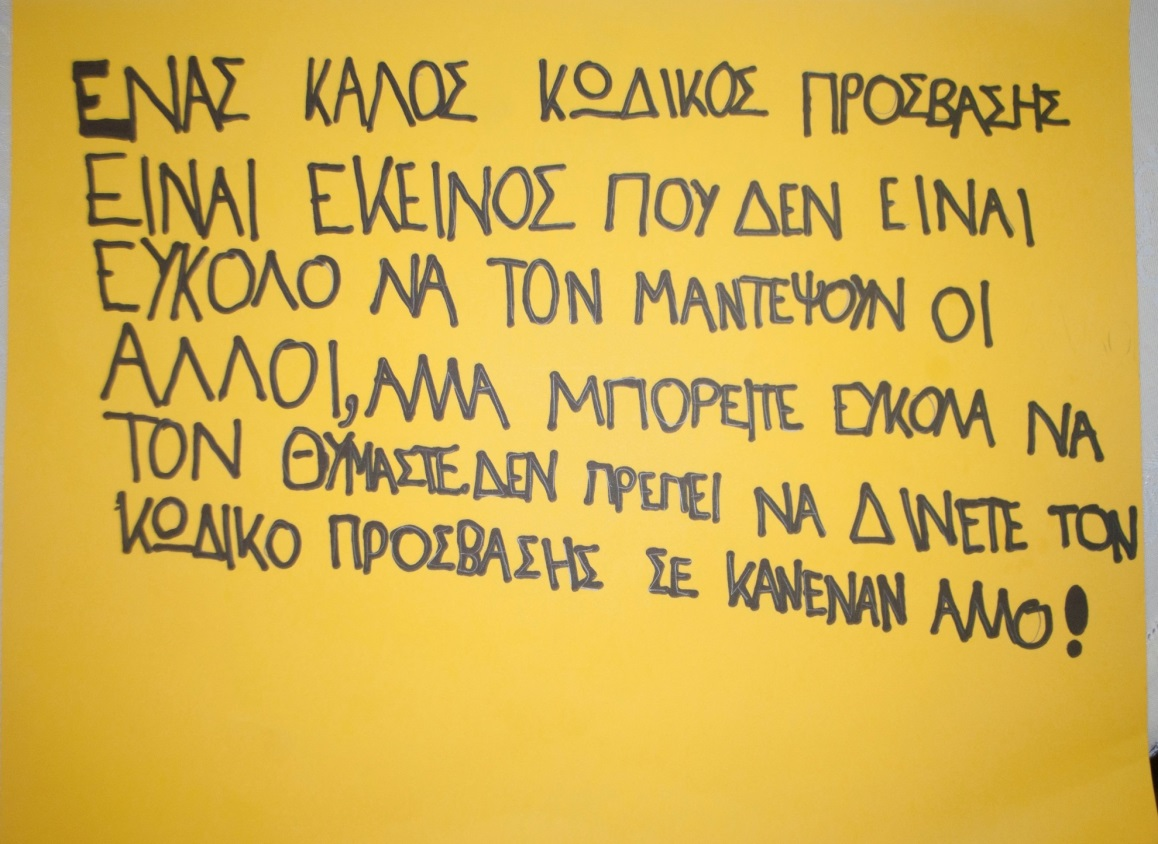 ΕΝΑΣ ΚΑΛΟΣ ΚΩΔΙΚΟΣ ΠΡΟΣΒΑΣΗΣ
ΕΙΝΑΙ ΕΚΕΙΝΟΣ ΠΟΥ ΔΕΝ ΕΙΝΑΙ
ΕΥΚΟΛΟ ΝΑ ΤΟΝ ΜΑΝΤΕΨΟΥΝ ΟΙ
ΑΛΛΟΙ, ΑΛΛΑ ΜΠΟΡΕΙΤΕ ΕΥΚΟΛΑ ΝΑ
ΤΟΝ ΘΥΜΑΣΤΕ.ΔΕΝ ΠΡΕΠΕΙ ΝΑ ΔΙΝΕΤΕ ΤΟΝ
ΚΩΔΙΚΟ ΠΡΟΣΒΑΣΗΣ ΣΕ ΚΑΝΕΝΑΝ ΑΛΛΟ!